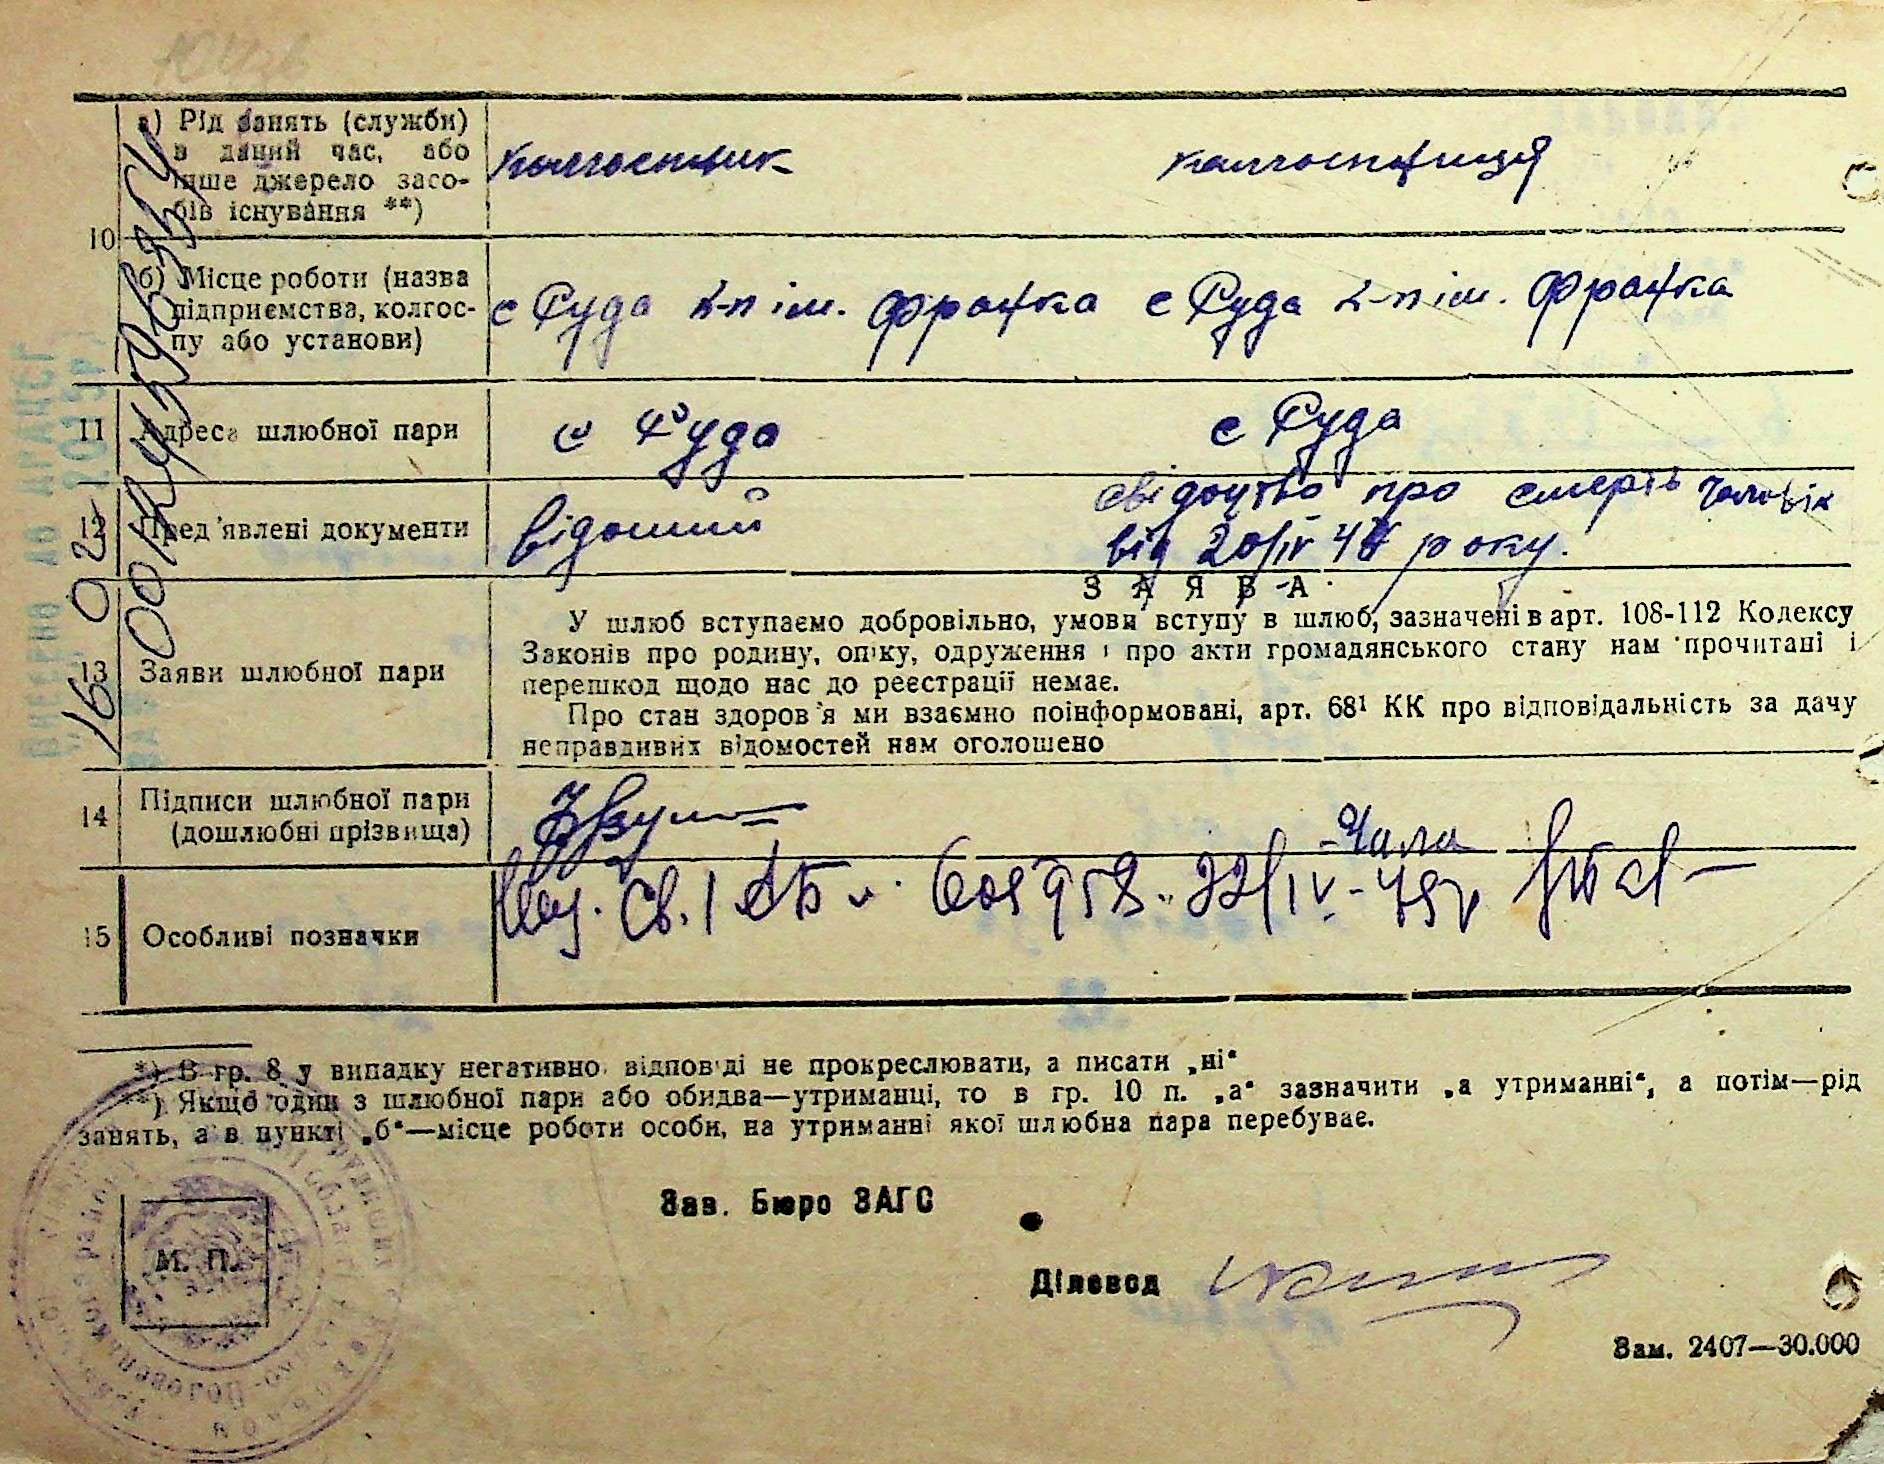 а) Рід занять (служби)
в даний час, або
інше джерело засо-
бів існування **)
колгоспник колгоспниця
10
б) Місце роботи (назва
підприємства, колгос-
пу або установи)
с Руда к-п ім. Франка с Руда к-п ім. Франка
11 Адреса шлюбної пари с Руда с Руда
12 Пред'явлені документи
відомий
свідоцтво про смерть чоловік
від 20/IV 48 року.
13 Заяви шлюбної пари
ЗАЯВА
У шлюб вступаємо добровільно, умови вступу в шлюб, зазначені в арт. 108-112 Кодексу
Законів про родину, опіку, одруження і про акти громадянського стану нам прочитані і
перешкод щодо нас до реєстрації немає.
Про стан здоров'я ми взаємно поінформовані, арт. 68¹ КК про відповідальність за дачу
неправдивих відомостей нам оголошено
14 Підписи шлюбної пари
(дошлюбні прізвища)
15 Особливі позначки
Св. 22/IV-49р
16 02
*) В гр. 8 у випадку негативно відповіді не прокреслювати, а писати „ні“
**) Якщо один з шлюбної пари або обидва—утриманці, то в гр. 10 п. „а“ зазначити „а утриманні“, а потім—рід
занять, а в пункті „б“—місце роботи особи, на утриманні якої шлюбна пара перебуває.
Зав. Бюро ЗАГС
М. П.
Діловод
Зам. 2407—30.000